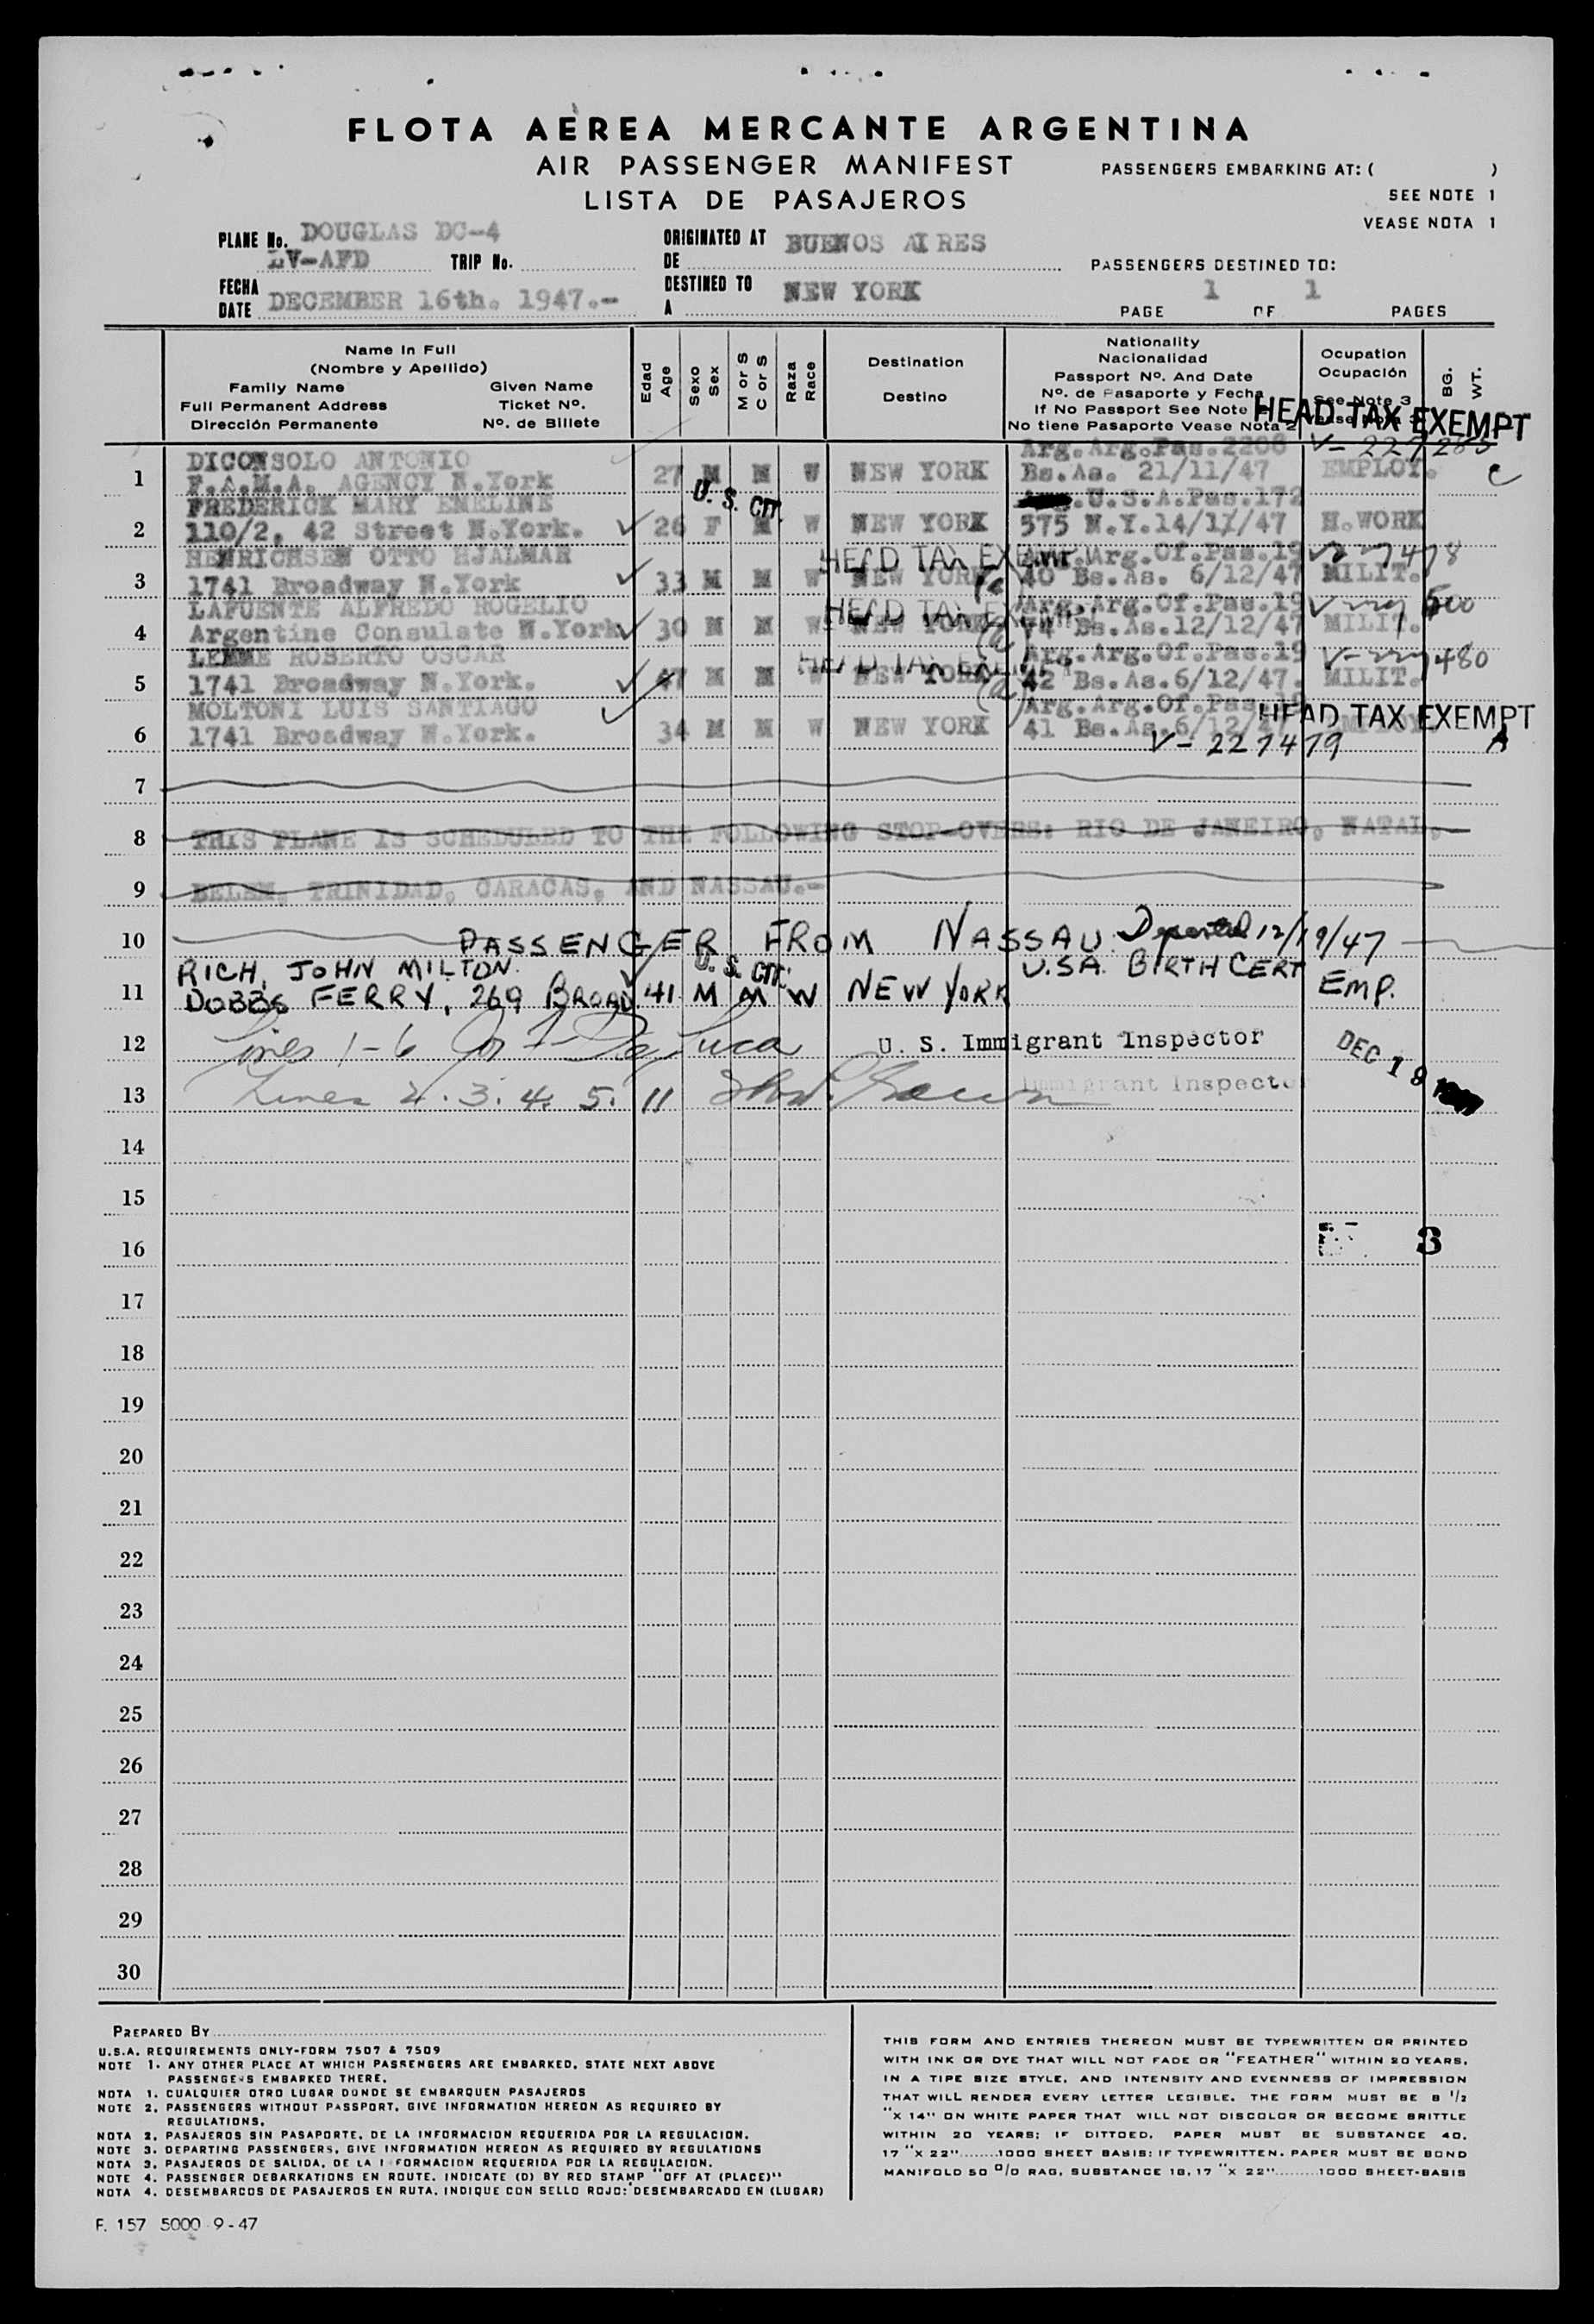 FLOTA AÈREA MERCANTE ARGENTINA
AIR PASSENGER MANIFEST
PASSENGERS EMBARKING AT: ( )
LISTA DE PASAJEROS
SEE NOTE 1
VEASE NOTA 1
PLANE No. DOUGLAS DC-4
LV-AFD TRIP No.
ORIGINATED AT BUENOS AIRES
DE
PASSENGERS DESTINED TO:
FECHA
DATE DECEMBER 16th. 1947.-
DESTINED TO NEW YORK
A
PAGE 1 OF 1 PAGES
Name In Full
(Nombre y Apellido)
Family Name Given Name
Full Permanent Address Ticket Nº.
Dirección Permanente Nº. de Billete
Edad
Age
Sexo
Sex
M or S
C or S
Raza
Race
Destination
Destino
Nationality
Nacionalidad
Passport Nº. And Date
Nº. de Pasaporte y Fecha
If No Passport See Note
No tiene Pasaporte Vease Nota 2
Ocupation
Ocupación
See Note 3
BG.
WT.
HEAD TAX EXEMPT
DICONSOLO ANTONIO Arg.Arg.Pas.2208
1 F.A.M.A. AGENCY N.York 27 M M W NEW YORK Bs.As. 21/11/47 EMPLOY. C
FREDERICK MARY EMELINE U.S. CIT. U.S.A.Pas.172
2 110/2, 42 Street N.York. 26 F M W NEW YORK 575 N.Y.14/11/47 H.WORK
HENRICHSEN OTTO HJALMAR HEAD TAX EXEMPT Arg.Of.Pas.19
3 1741 Broadway N.York 33 M M W NEW YORK 40 Bs.As. 6/12/47 MILIT.
LAFUENTE ALFREDO ROGELIO HEAD TAX EXEMPT Arg.Arg.Of.Pas.19
4 Argentine Consulate N.York 30 M M W NEW YORK 74 Bs.As.12/12/47 MILIT.
LEMME ROBERTO OSCAR HEAD TAX Arg.Arg.Of.Pas.19
5 1741 Broadway N.York. 47 M M W NEW YORK 42 Bs.As.6/12/47. MILIT.
MOLTONI LUIS SANTIAGO Arg.Arg.Of.Pas.19 HEAD TAX EXEMPT
6 1741 Broadway N.York. 34 M M W NEW YORK 41 Bs.As.6/12/47
V-227479 A
7
8 THIS PLANE IS SCHEDULED TO THE FOLLOWING STOP-OVERS: RIO DE JANEIRO, NATAL,
9 BELEM, TRINIDAD, CARACAS, AND NASSAU.-
10 PASSENGER FROM NASSAU Departed 12/19/47
RICH, JOHN MILTON. U.S. CIT. U.S.A. BIRTH CERT
11 DOBBS FERRY, 269 BROAD 41 M M W NEW YORK EMP.
12 Lines 1-6 U. S. Immigrant Inspector DEC 19
13 Lines 2. 3. 4. 5. 11 Immigrant Inspector
14
15
16 3
17
18
19
20
21
22
23
24
25
26
27
28
29
30
PREPARED BY
U.S.A. REQUIREMENTS ONLY-FORM 7507 & 7509
NOTE 1. ANY OTHER PLACE AT WHICH PASSENGERS ARE EMBARKED, STATE NEXT ABOVE
PASSENGERS EMBARKED THERE.
NOTA 1. CUALQUIER OTRO LUGAR DONDE SE EMBARQUEN PASAJEROS
NOTE 2. PASSENGERS WITHOUT PASSPORT, GIVE INFORMATION HEREON AS REQUIRED BY
REGULATIONS.
NOTA 2. PASAJEROS SIN PASAPORTE, DE LA INFORMACION REQUERIDA POR LA REGULACION.
NOTE 3. DEPARTING PASSENGERS, GIVE INFORMATION HEREON AS REQUIRED BY REGULATIONS
NOTA 3. PASAJEROS DE SALIDA, DE LA I FORMACION REQUERIDA POR LA REGULACION.
NOTE 4. PASSENGER DEBARKATIONS EN ROUTE, INDICATE (D) BY RED STAMP "OFF AT (PLACE)"
NOTA 4. DESEMBARCOS DE PASAJEROS EN RUTA, INDIQUE CON SELLO ROJO: DESEMBARCADO EN (LUGAR)
THIS FORM AND ENTRIES THEREON MUST BE TYPEWRITTEN OR PRINTED
WITH INK OR DYE THAT WILL NOT FADE OR "FEATHER" WITHIN 20 YEARS,
IN A TIPE SIZE STYLE, AND INTENSITY AND EVENNESS OF IMPRESSION
THAT WILL RENDER EVERY LETTER LEGIBLE. THE FORM MUST BE 8 1/2
"X 14" ON WHITE PAPER THAT WILL NOT DISCOLOR OR BECOME BRITTLE
WITHIN 20 YEARS; IF DITTOED, PAPER MUST BE SUBSTANCE 40.
17 "X 22".......1000 SHEET BASIS; IF TYPEWRITTEN, PAPER MUST BE BOND
MANIFOLD 50 0/0 RAG, SUBSTANCE 18, 17 "X 22".........1000 SHEET-BASIS
F. 157 5000 9-47